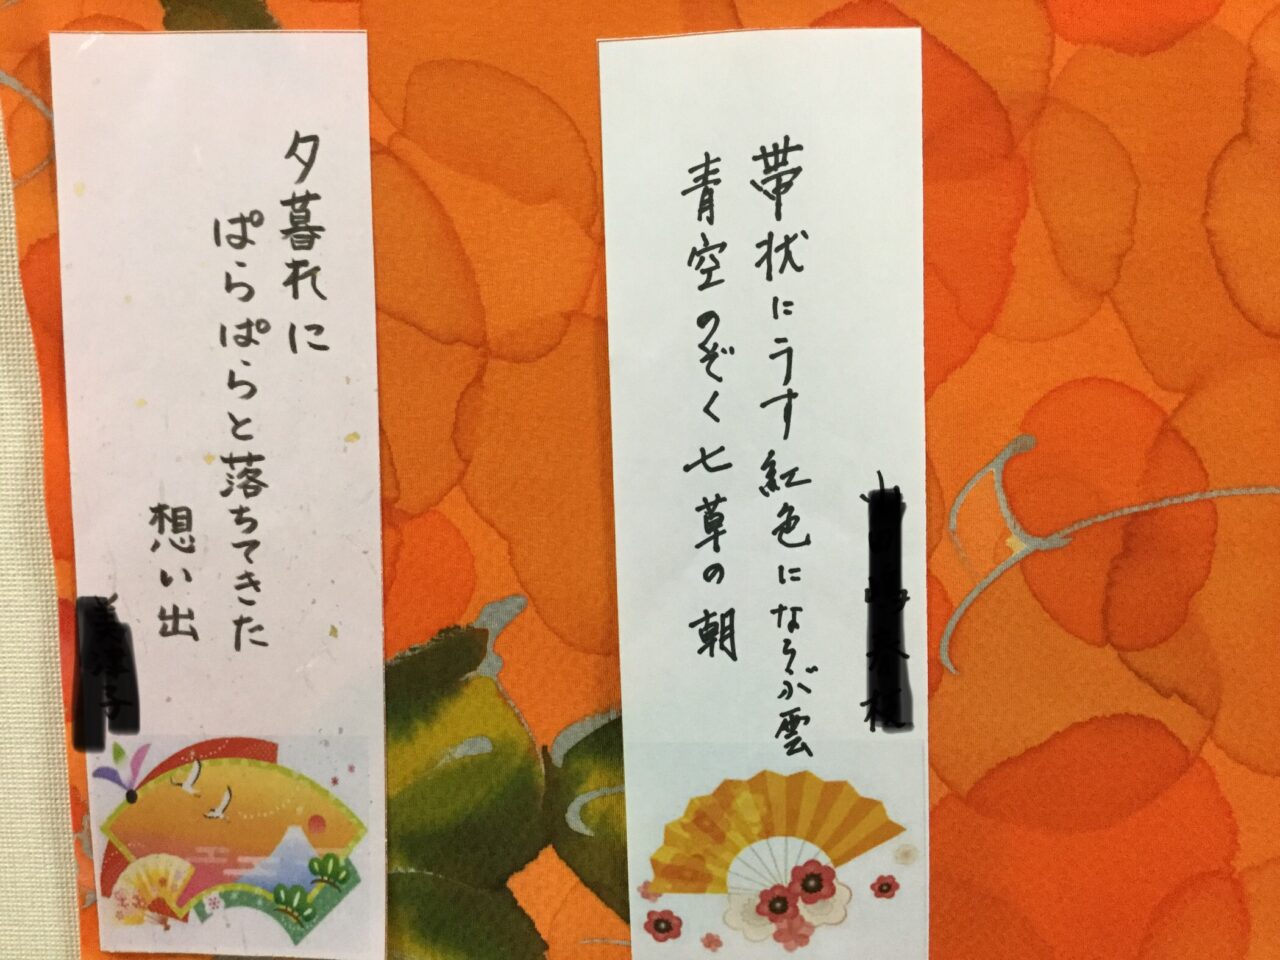 帯状にうす紅色にならぶ雲
青空のぞく七草の朝
夕暮れに
ぱらぱらと落ちてきた
想い出